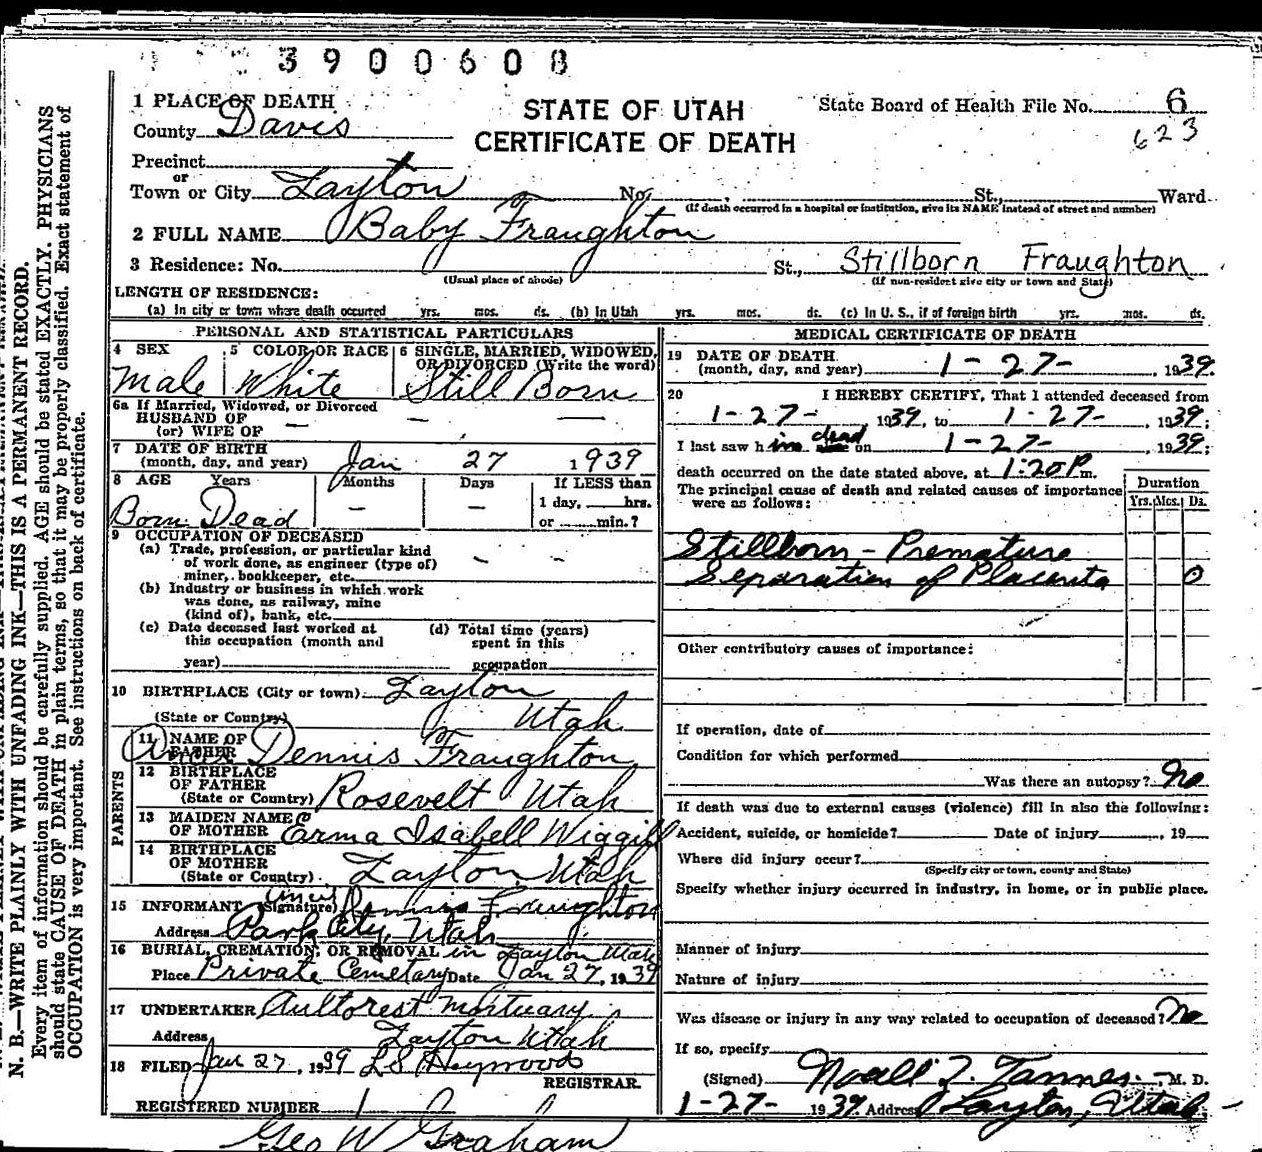 3900608
1 PLACE OF DEATH
STATE OF UTAH
CERTIFICATE OF DEATH
State Board of Health File No. 6
623
County Davis
Precinct
or
Town or City Layton No. St., Ward
(If death occurred in a hospital or institution, give its NAME instead of street and number)
2 FULL NAME Baby Fraughton
3 Residence: No. St., Stillborn Fraughton
(Usual place of abode) (If non-resident give city or town and State)
LENGTH OF RESIDENCE:
(a) In city or town where death occurred yrs. mos. ds. (b) In Utah yrs. mos. ds. (c) In U. S., if of foreign birth yrs. mos. ds.
PERSONAL AND STATISTICAL PARTICULARS
4 SEX Male
5 COLOR OR RACE White
6 SINGLE, MARRIED, WIDOWED, OR DIVORCED (Write the word) Still Born
6a If Married, Widowed, or Divorced
HUSBAND OF — — —
(or) WIFE OF
7 DATE OF BIRTH
(month, day, and year) Jan 27 1939
8 AGE Years Months Days If LESS than
1 day, hrs.
or min.?
Born Dead — —
9 OCCUPATION OF DECEASED
(a) Trade, profession, or particular kind
of work done, as engineer (type of)
miner, bookkeeper, etc. - -
(b) Industry or business in which work
was done, as railway, mine
(kind of), bank, etc.
(c) Date deceased last worked at
this occupation (month and
year)
(d) Total time (years)
spent in this
occupation
10 BIRTHPLACE (City or town) Layton
(State or Country) Utah
PARENTS
11 NAME OF
FATHER Dennis Fraughton
12 BIRTHPLACE
OF FATHER
(State or Country) Rosevelt Utah
13 MAIDEN NAME
OF MOTHER Erma Isabell Wiggill
14 BIRTHPLACE
OF MOTHER
(State or Country) Layton Utah
15 INFORMANT (Signature) Dennis Fraughton
Address Park City, Utah
16 BURIAL, CREMATION, OR REMOVAL in Layton Utah
Place Private Cemetary Date Jan 27, 1939
17 UNDERTAKER Aultorest Mortuary
Address Layton Utah
18 FILED Jan 27, 1939 LS Heywood
REGISTRAR.
REGISTERED NUMBER 1
Geo W Graham
MEDICAL CERTIFICATE OF DEATH
19 DATE OF DEATH
(month, day, and year) 1-27-, 1939.
20 I HEREBY CERTIFY, That I attended deceased from
1-27- 1939, to 1-27-, 1939;
I last saw him dead on 1-27-, 1939;
death occurred on the date stated above, at 1:20 P m.
The principal cause of death and related causes of importance
were as follows:
Duration
Yrs. Mos. Ds.
Stillborn - Premature
Separation of Placenta 0
Other contributory causes of importance:
If operation, date of
Condition for which performed
Was there an autopsy? No
If death was due to external causes (violence) fill in also the following:
Accident, suicide, or homicide? Date of injury, 19
Where did injury occur?
(Specify city or town, county and State)
Specify whether injury occurred in industry, in home, or in public place.
Manner of injury
Nature of injury
Was disease or injury in any way related to occupation of deceased? No
If so, specify
(Signed) Noall Z. Tanner, M. D.
1-27- 1939. Address Layton, Utah
N. B.—WRITE PLAINLY WITH UNFADING INK—THIS IS A PERMANENT RECORD.
Every item of information should be carefully supplied. AGE should be stated EXACTLY. PHYSICIANS
should state CAUSE OF DEATH in plain terms, so that it may be properly classified. Exact statement of
OCCUPATION is very important. See instructions on back of certificate.